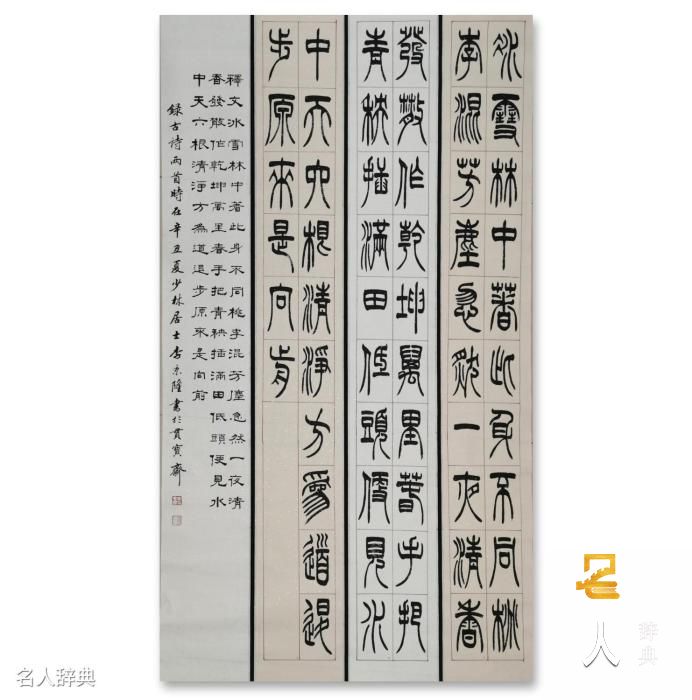 冰雪林中著此身不同桃
李混芳塵忽然一夜清香
發散作乾坤萬里春手把
青秧插滿田低頭便見水
中天六根清淨方為道退
步原來是向前
釋文冰雪林中著此身不同桃李混芳塵忽然一夜清
香發散作乾坤萬里春手把青秧插滿田低頭便見水
中天六根清淨方為道退步原來是向前
錄古詩兩首時在辛丑夏少林居士李京隆書於貫寶齋
名人辞典
名人辞典